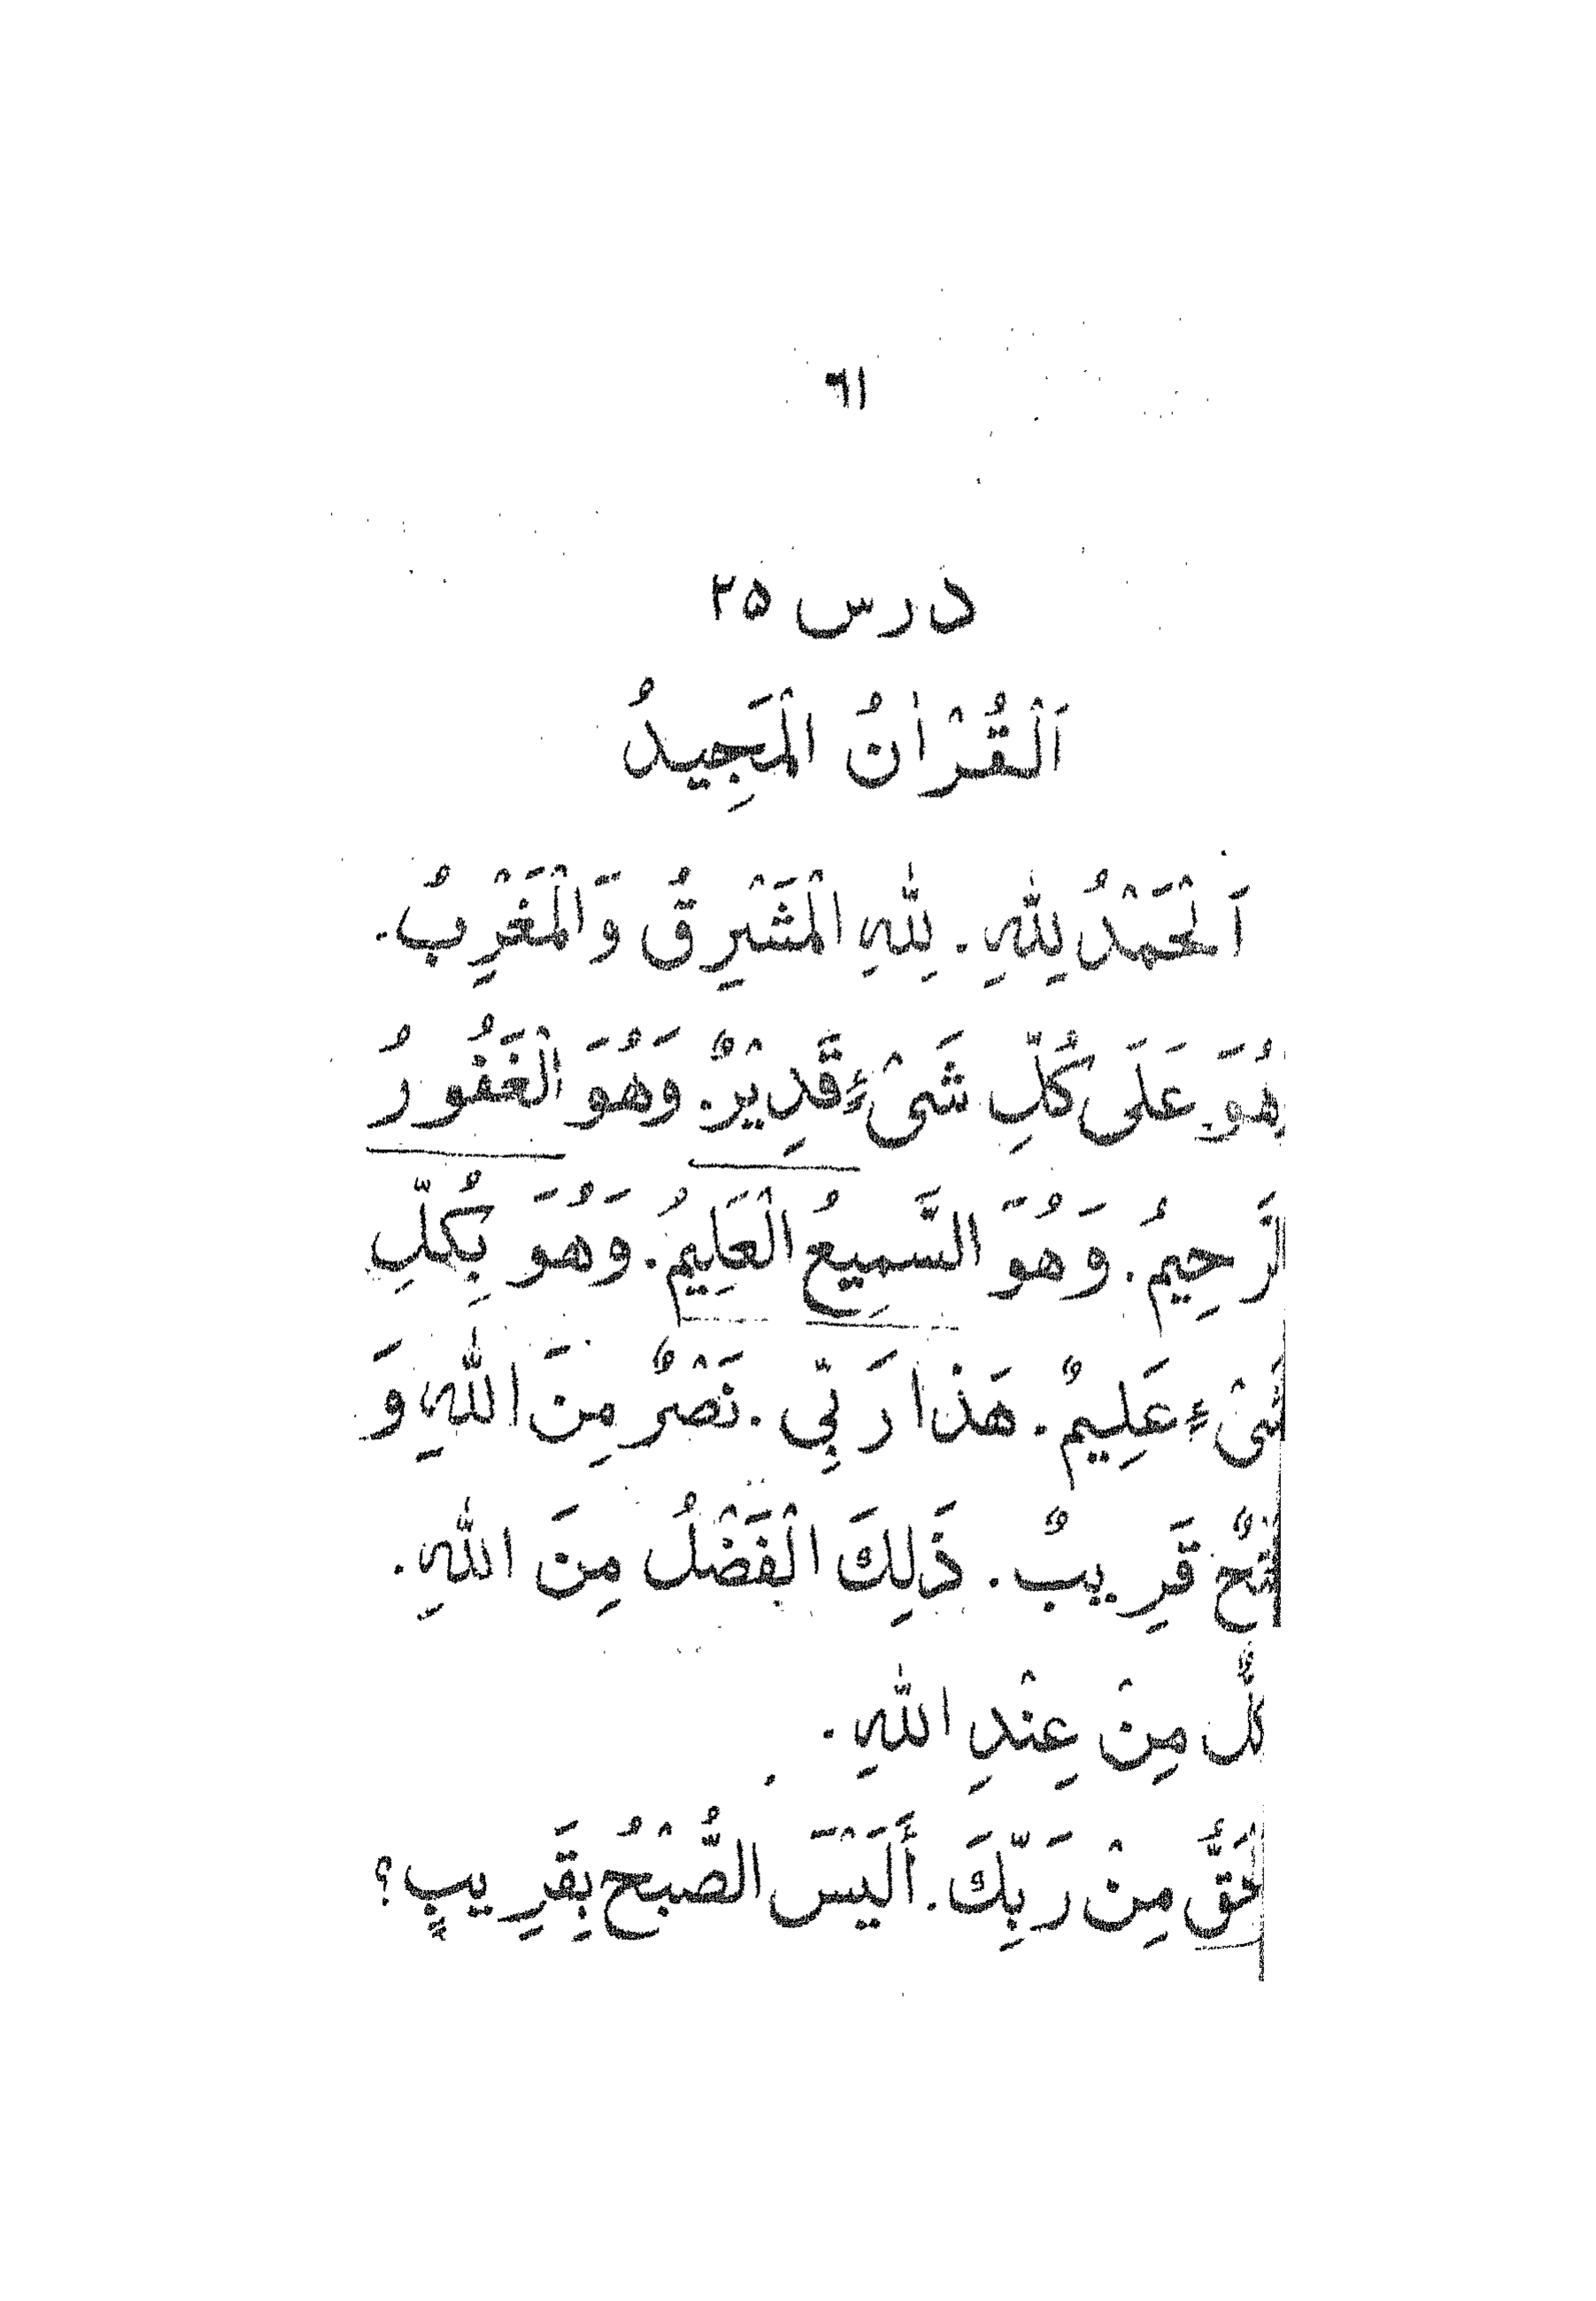 ٦١
درس ٢٥
اَلْقُرْاٰنُ الْمَجِيدُ
اَلْحَمْدُ لِلّٰهِ. لِلّٰهِ الْمَشْرِقُ وَالْمَغْرِبُ.
هُوَ عَلَى كُلِّ شَىْءٍ قَدِيْرٌ. وَهُوَ الْغَفُورُ
الرَّحِيمُ. وَهُوَ السَّمِيعُ الْعَلِيمُ. وَهُوَ بِكُلِّ
شَىْءٍ عَلِيمٌ. هَذَا رَبِّي. نَصْرٌ مِنَ اللّٰهِ وَ
فَتْحٌ قَرِيبٌ. ذَلِكَ الْفَضْلُ مِنَ اللّٰهِ.
كُلٌّ مِنْ عِنْدِ اللّٰهِ.
الْحَقُّ مِنْ رَبِّكَ. أَلَيْسَ الصُّبْحُ بِقَرِيبٍ؟